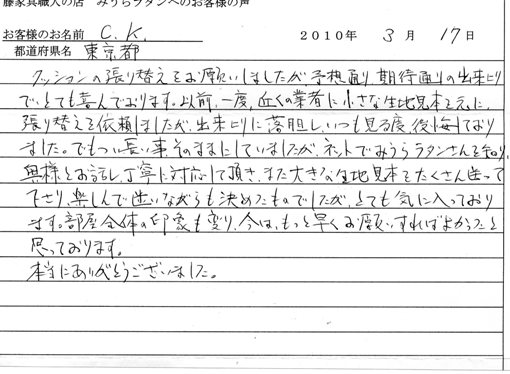 藤家具職人の店 みうらラタンへのお客様の声
お客様のお名前 C.K. 2010年 3月 17日
都道府県名 東京都
クッションの張り替えをお願いしましたが予想通り、期待通りの出来上り
で、とても喜んでおります。以前、一度、近くの業者に小さな生地見本を元に、
張り替えを依頼しましたが、出来上りに落胆し、いつも見る度、後悔しており
ました。でもつい長い事そのままにしていましたが、ネットでみうらラタンさんを知り、
奥様とお話し、丁寧に対応して頂き、また大きな生地見本をたくさん送って
下さり、楽しんで迷いながらも決めたものでしたが、とても気に入っており
ます。部屋全体の印象も変り、今は、もっと早くお願いすればよかったと
思っております。
本当にありがとうございました。